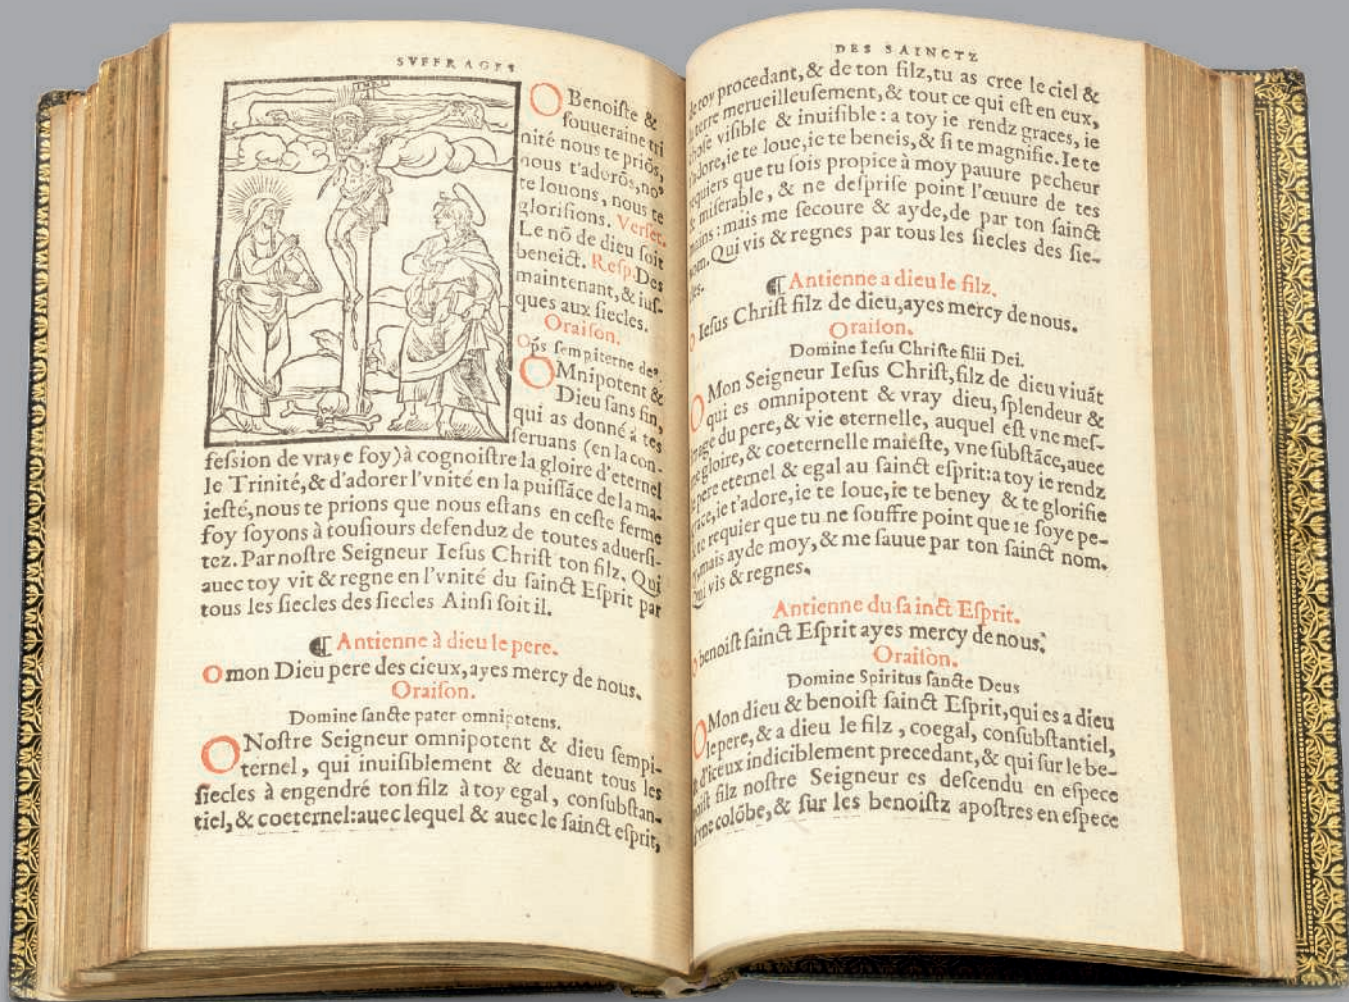 SVFFRAGES
O Benoiſte &
ſouueraine tri
nité nous te priõs,
nous t'adorõs, noꝰ
te louons, nous te
gloriſions. Verſet.
Le nõ de dieu ſoit
beneict. Reſp. Des
maintenant, & iuſ-
ques aux ſiecles.
Oraiſon.
Ops ſempiterne deꝰ.
OMnipotent &
Dieu ſans fin,
qui as donné à tes
ſeruans (en la con-
feſſion de vraye foy) à cognoiſtre la gloire d'eternel
le Trinité, & d'adorer l'vnité en la puiſſãce de la ma-
ieſté, nous te prions que nous eſtans en ceſte ferme
foy ſoyons à touſiours defenduz de toutes aduerſi-
tez. Par noſtre Seigneur Ieſus Chriſt ton filz. Qui
auec toy vit & regne en l'vnité du ſainct Eſprit par
tous les ſiecles des ſiecles Ainſi ſoit il.
¶ Antienne à dieu le pere.
O mon Dieu pere des cieux, ayes mercy de nous.
Oraiſon.
Domine ſancte pater omnipotens.
O Noſtre Seigneur omnipotent & dieu ſempi-
ternel, qui inuiſiblement & deuant tous les
ſiecles à engendré ton filz à toy egal, conſubſtan-
tiel, & coeternel: auec lequel & auec le ſainct eſprit,
DES SAINCTZ
de toy procedant, & de ton filz, tu as cree le ciel &
terre merueilleuſement, & tout ce qui eſt en eux,
choſe viſible & inuiſible: a toy ie rendz graces, ie
t'adore, ie te loue, ie te beneis, & ſi te magnifie. Ie te
requiers que tu ſois propice à moy pauure pecheur
& miſerable, & ne deſpriſe point l'œuure de tes
mains: mais me ſecoure & ayde, de par ton ſainct
nom. Qui vis & regnes par tous les ſiecles des ſie-
cles.
¶ Antienne a dieu le filz.
O Ieſus Chriſt filz de dieu, ayes mercy de nous.
Oraiſon.
Domine Ieſu Chriſte filii Dei.
O Mon Seigneur Ieſus Chriſt, filz de dieu viuãt
qui es omnipotent & vray dieu, ſplendeur &
image du pere, & vie eternelle, auquel eſt vne meſ-
me gloire, & coeternelle maieſte, vne ſubſtãce, auec
le pere eternel & egal au ſainct eſprit: a toy ie rendz
grace, ie t'adore, ie te loue, ie te beney & te glorifie
& te requier que tu ne ſouffre point que ie ſoye pe-
ry, mais ayde moy, & me ſauue par ton ſainct nom.
Qui vis & regnes.
Antienne du ſainct Eſprit.
O benoiſt ſainct Eſprit ayes mercy de nous.
Oraiſon.
Domine Spiritus ſancte Deus
O Mon dieu & benoiſt ſainct Eſprit, qui es a dieu
le pere, & a dieu le filz, coegal, conſubſtantiel,
& d'iceux indiciblement precedant, & qui ſur le be-
noiſt filz noſtre Seigneur es deſcendu en eſpece
d'vne colõbe, & ſur les benoiſtz apoſtres en eſpece